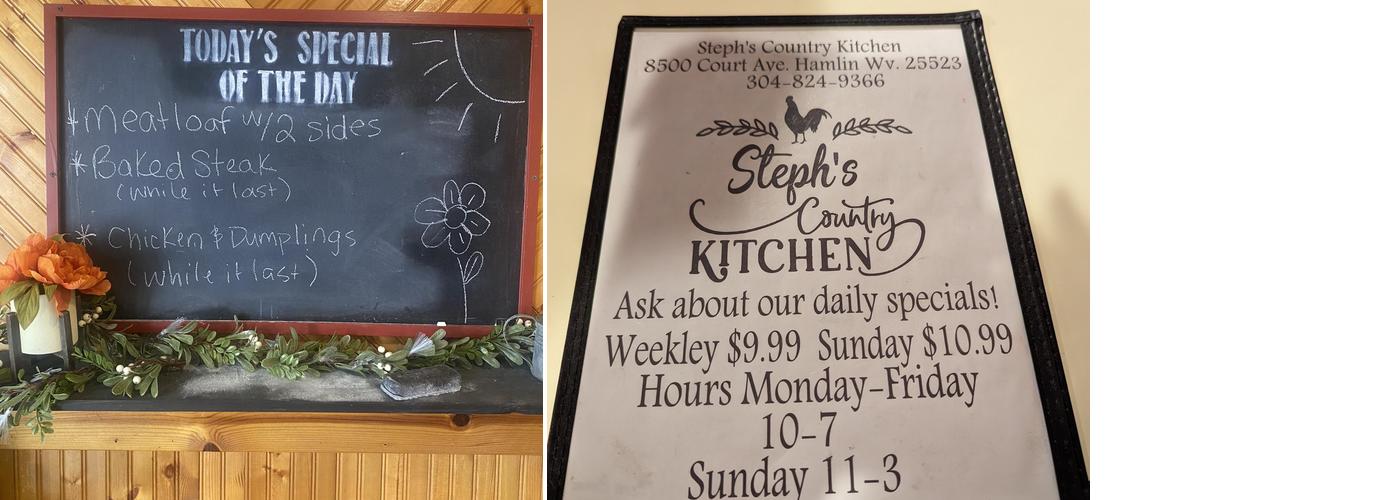 TODAY'S SPECIAL
OF THE DAY
* Meatloaf w/2 sides
* Baked Steak
(while it last)
* Chicken & Dumplings
(while it last)
Steph's Country Kitchen
8500 Court Ave. Hamlin Wv. 25523
304-824-9366
Steph's
Country
KITCHEN
Ask about our daily specials!
Weekley $9.99 Sunday $10.99
Hours Monday-Friday
10-7
Sunday 11-3